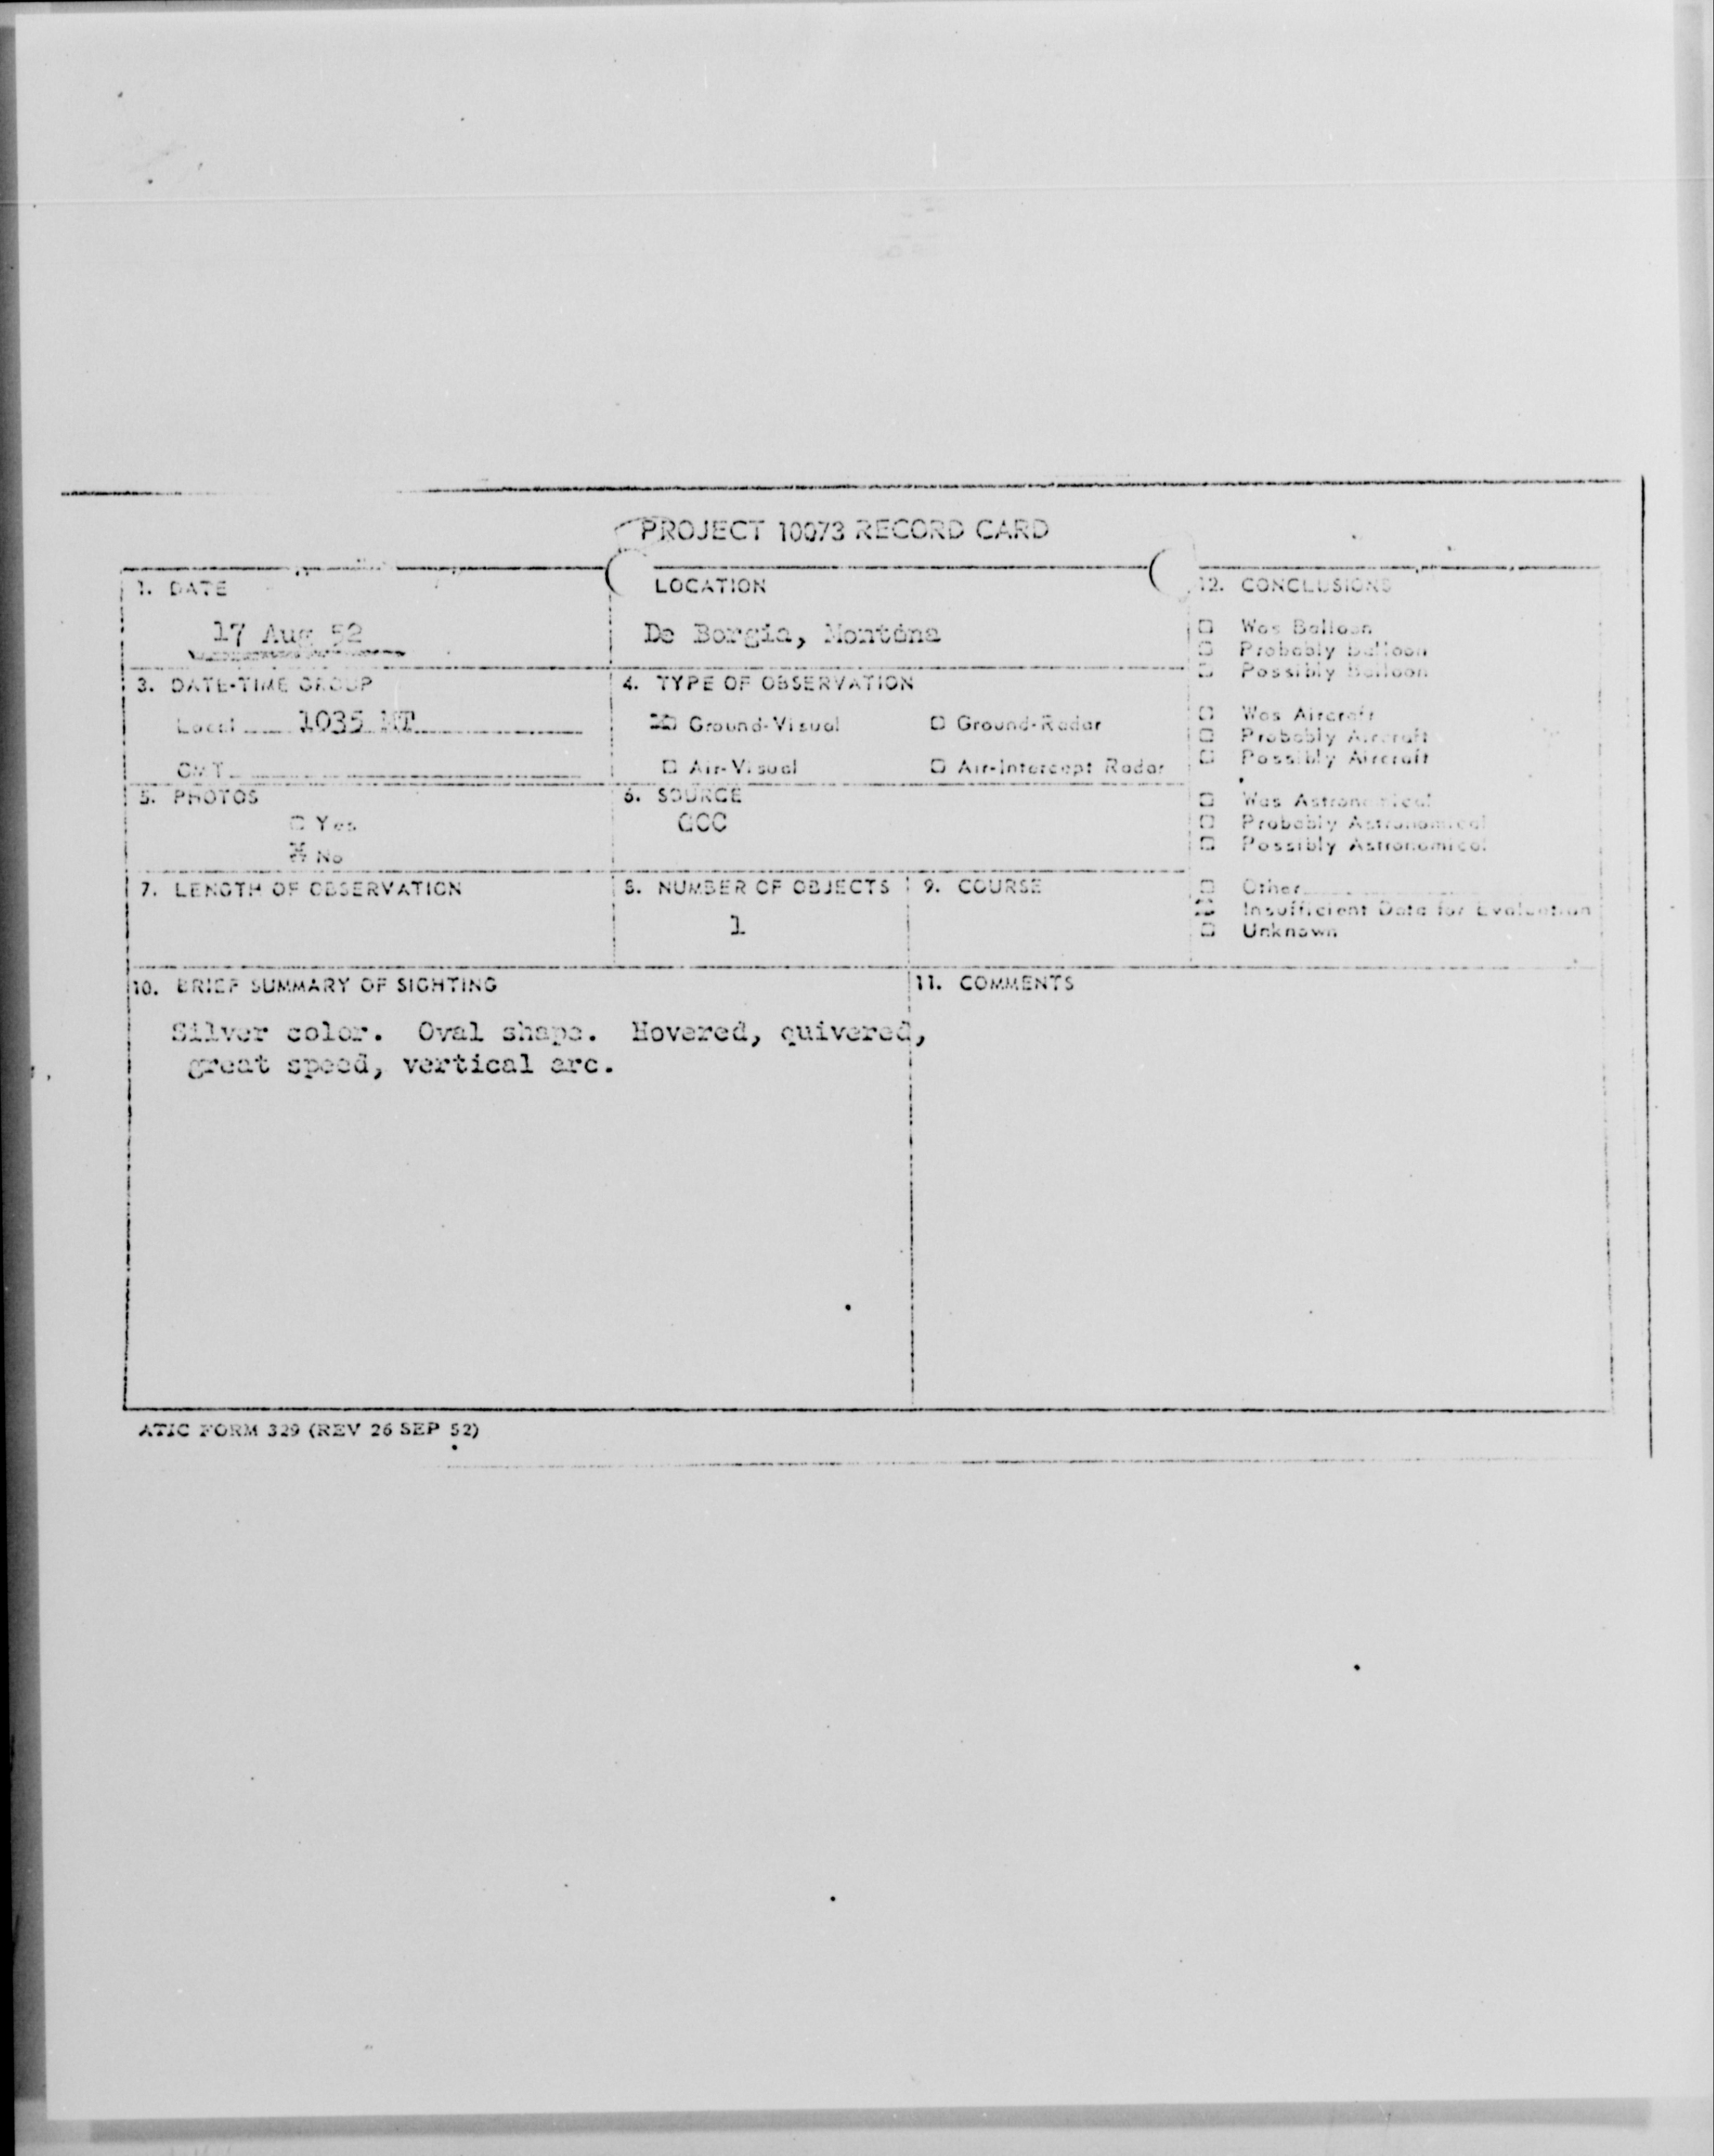 PROJECT 10073 RECORD CARD
1. DATE
17 Aug 52
LOCATION
De Borgia, Montana
12. CONCLUSIONS
Was Balloon
Probably Balloon
Possibly Balloon
Was Aircraft
Probably Aircraft
Possibly Aircraft
Was Astronomical
Probably Astronomical
Possibly Astronomical
Other
Insufficient Data for Evaluation
Unknown
3. DATE-TIME GROUP
Local 1035 MT
GMT
4. TYPE OF OBSERVATION
Ground-Visual Ground-Radar
Air-Visual Air-Intercept Radar
5. PHOTOS
Yes
No
6. SOURCE
GCC
7. LENGTH OF OBSERVATION
8. NUMBER OF OBJECTS
1
9. COURSE
10. BRIEF SUMMARY OF SIGHTING
Silver color. Oval shape. Hovered, quivered,
great speed, vertical arc.
11. COMMENTS
ATIC FORM 329 (REV 26 SEP 52)